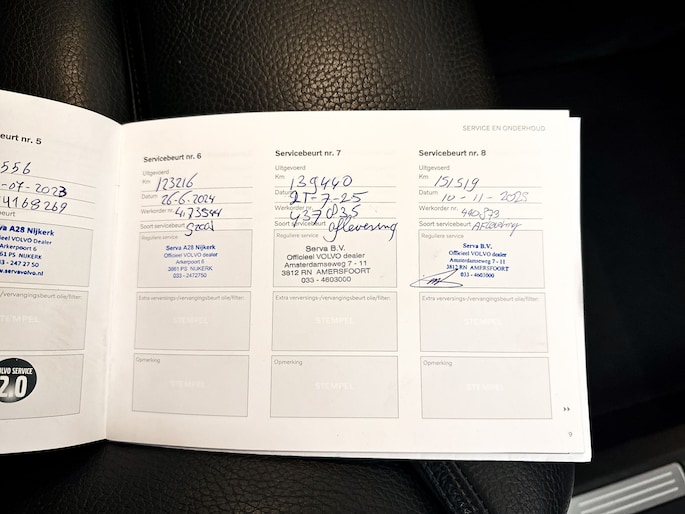 SERVICE EN ONDERHOUD
eurt nr. 5
556
-07-2023
4168269
beurt
rva A28 Nijkerk
icieel VOLVO dealer
Arkerpoort 6
861 PS NIJKERK
33 - 247 27 50
www.servavolvo.nl
s-/vervangingsbeurt olie/filter:
STEMPEL
VOLVO SERVICE
2.0
Servicebeurt nr. 6
Uitgevoerd
Km 123216
Datum 26-6-2024
Werkorder nr.
Soort servicebeurt
Reguliere service
Serva A28 Nijkerk
Officieel VOLVO dealer
Arkerpoort 6
3861 PS NIJKERK
033 - 2472750
Extra verversings-/vervangingsbeurt olie/filter:
STEMPEL
Opmerking
STEMPEL
Servicebeurt nr. 7
Uitgevoerd
Km 139440
Datum 21-7-25
Werkorder nr. 4370835
Soort servicebeurt aflevering
Reguliere service
Serva B.V.
Officieel VOLVO dealer
Amsterdamseweg 7 - 11
3812 RN AMERSFOORT
033 - 4603000
Extra verversings-/vervangingsbeurt olie/filter:
STEMPEL
Opmerking
STEMPEL
Servicebeurt nr. 8
Uitgevoerd
Km 151519
Datum 10-11-2025
Werkorder nr. 440873
Soort servicebeurt Aflevering
Reguliere service
Serva B.V.
Officieel VOLVO dealer
Amsterdamseweg 7 - 11
3812 RN AMERSFOORT
033 - 4603000
Extra verversings-/vervangingsbeurt olie/filter:
STEMPEL
Opmerking
STEMPEL
››
9